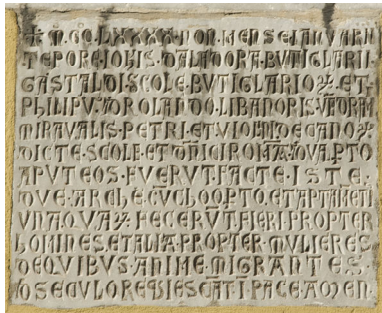 ✠ M̊·CC̊·LXXXX·NON·MENSE IANUARII
TEPORE·IOHIS·DALADORA·BUTIGLARII
GASTALDI SCOLE·BUTIGLARIOꝜ·ET·
PHILIPU ROLANDO·LIBANORIS·
MIRAVALIS·PETRI·ET VIOLINI DECANOꝜ
DICTE·SCOLE·ET DNICI ROMA DUA PTO
APUTEOS·FUERUT·FACTE·ISTE·
DUE·ARCHE·CVCHOOPTO·ET APTAMETI
UNA QUAꝜ·HEC ERUT FIERI·PROPTER
HOMINES·ET ALIA·PROPTER·MULIERES
DE QUIBUS·ANIME·MIGRANTES·
D SECULO REQIESCAT I PACE·AMEN·